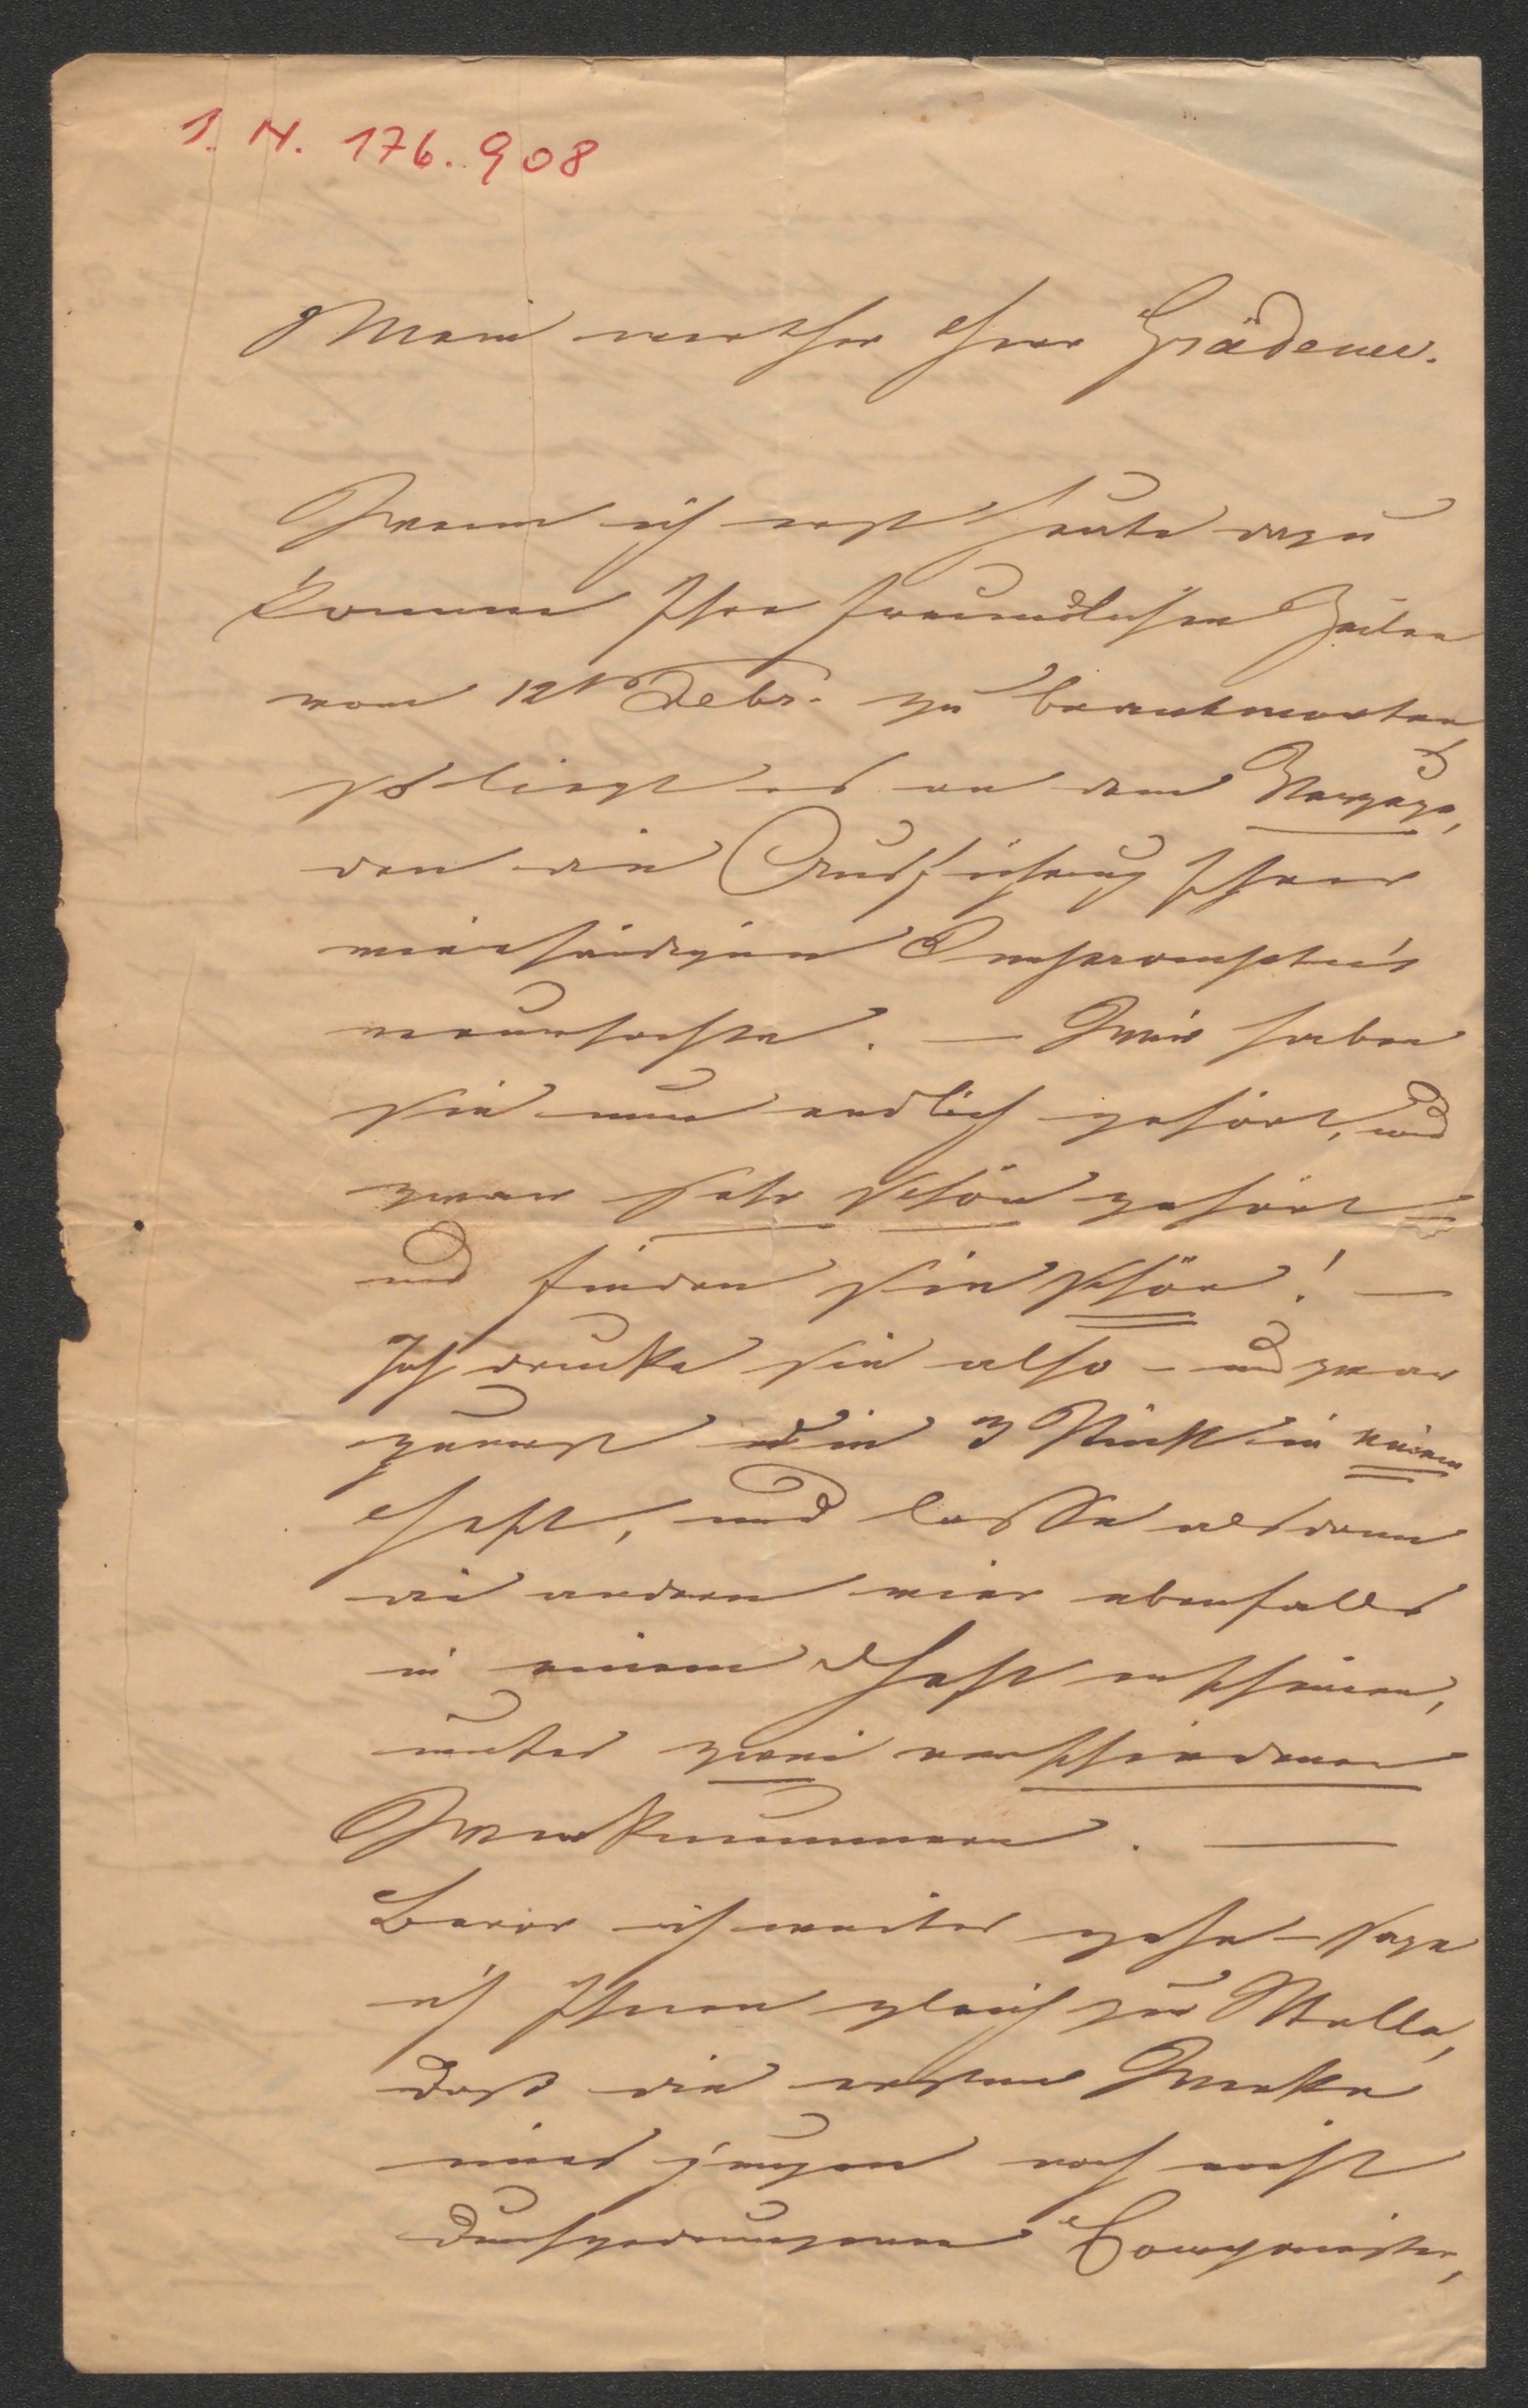 I. N. 176.908
Mein werther Herr Grädener.
Wenn ich erst heute dazu
komme Ihre freundlichen Zeilen
vom 12t Febr. zu beantworten,
so liegt es an dem
den die Ausführung Ihrer
vierhändigen Impromptu's
verursachte. — Wir haben
sie nun endlich gehört, und
zwar sehr schön gehört —
und finden sie schön! —
Ich drucke sie also – und zwar
zuerst die 3 Stück in einem
Heft, und lasse alsdann
die andern vier ebenfalls
in einem Heft erscheinen,
unter zwei verschiedenen
Werknummern. —
Bevor ich weiter gehe – sage
ich Ihnen gleich zur Stelle,
daß die ersten Werke
eines jungen noch nicht
durchgedrungenen Componisten,